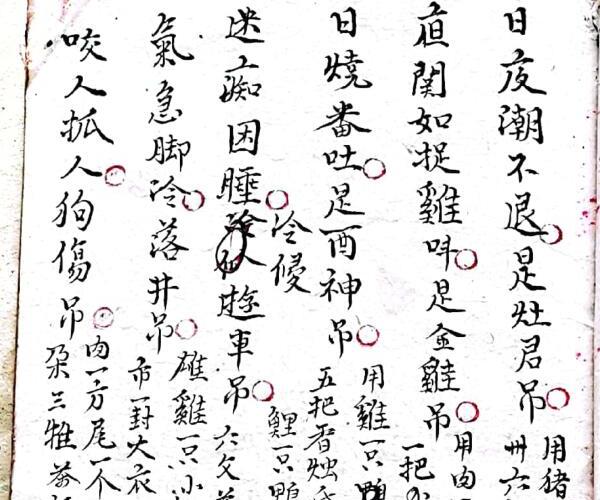 日夜潮不退是灶君吊
用猪
卅六
夜関如捉雞呌是金雞吊
用肉
一把
日燒番吐是酉神吊
用雞一只鴨
五把香烛
迷痴困腄冷傻遊車吊
鯉一只鴨
六文
氣急脚冷落井吊
雄雞一只小
布一封大衣
咬人抓人狗傷吊
肉一方尾一个
朶三牲茶